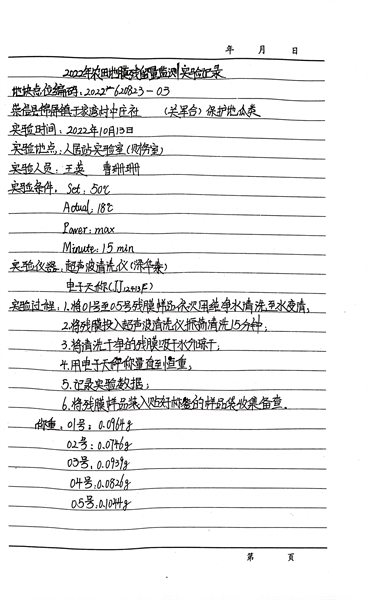 年 月 日
2022年农田地膜残留量监测实验记录
地块点位编码:2022620823-03
崇信县锦屏镇于家湾村中庄社 (关黑台) 保护地瓜类
实验时间:2022年10月13日
实验地点:人居站实验室(财务室)
实验人员:王英 曹珊珊
实验条件. Set:50℃
Actual:18℃
Power:max
Minute:15min
实验仪器:超声波清洗仪(洁华泰)
电子天称(JJ1243F)
实验过程:1.将01号至05号残膜样品依次用纯净水清洗至水变清;
2.将残膜投入超声波清洗仪振荡清洗15分钟;
3.将清洗干净的残膜吸干水分晾干;
4.用电子天秤称量直到恒重;
5.记录实验数据;
6.将残膜样品装入贴好标签的样品袋收集备查.
称重:01号:0.0964g
02号:0.0746g
03号:0.0939g
04号:0.0826g
05号:0.1044g
第 页